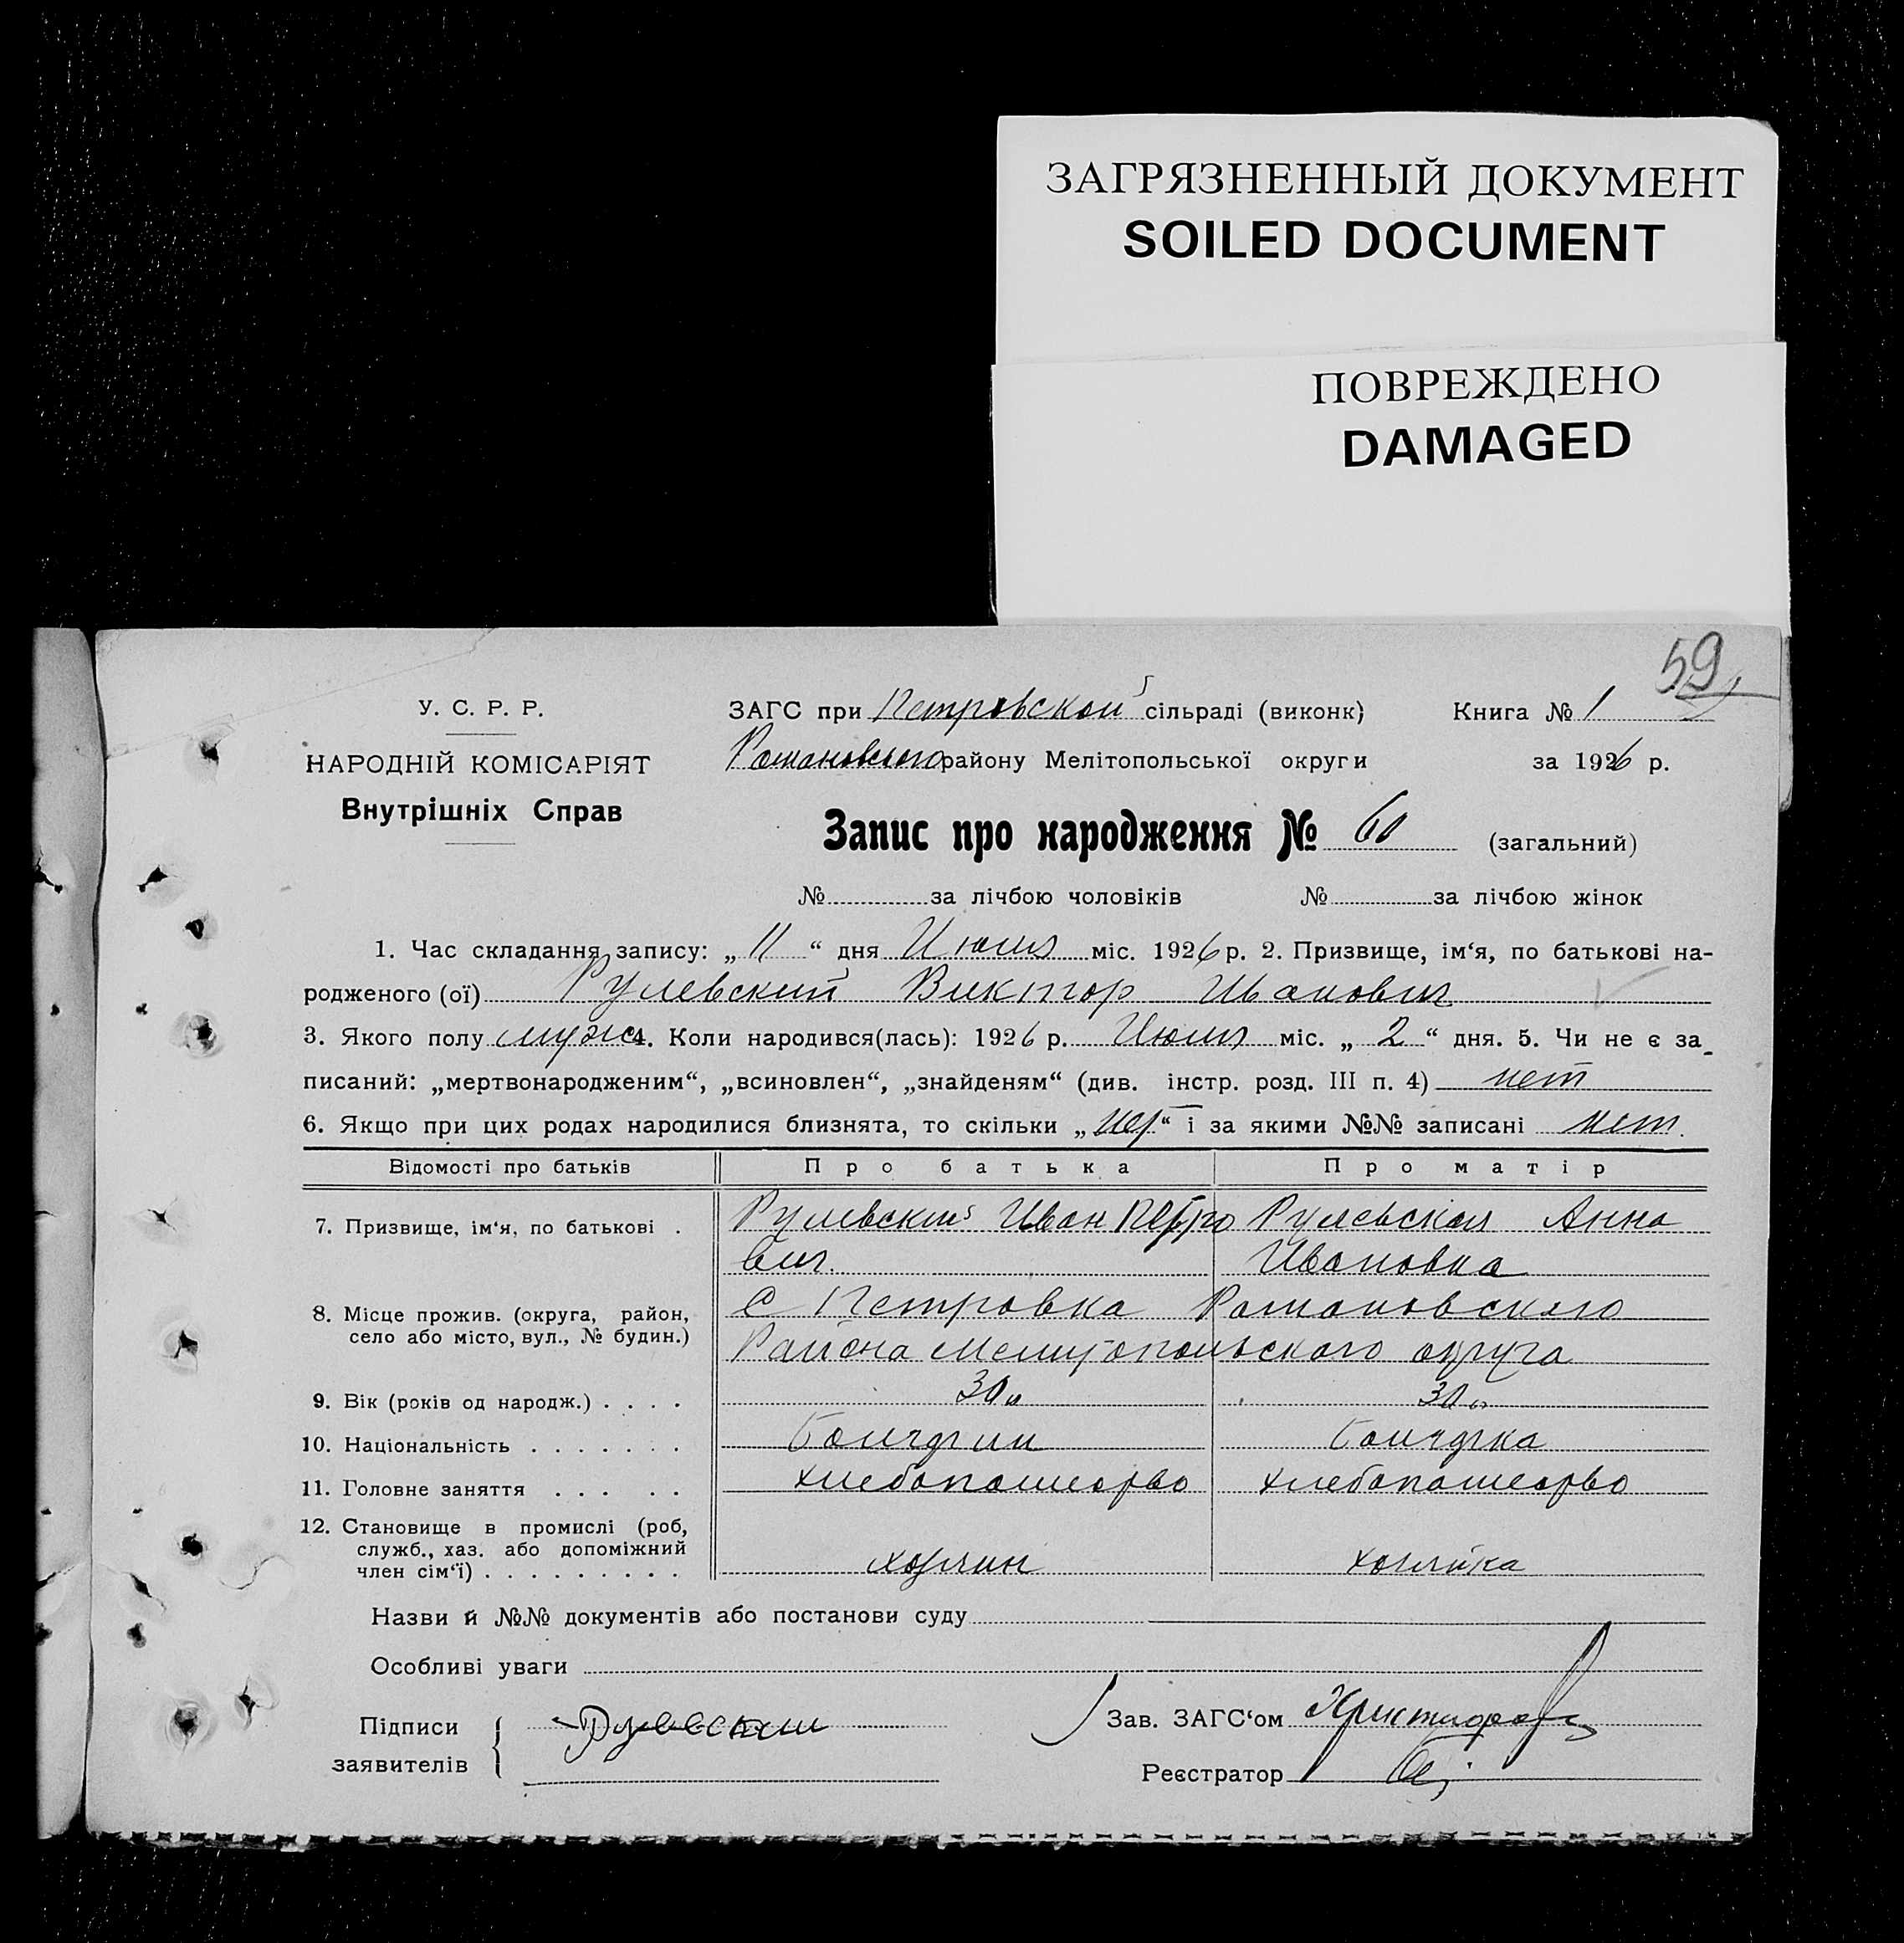 ЗАГРЯЗНЕННЫЙ ДОКУМЕНТ
SOILED DOCUMENT
ПОВРЕЖДЕНО
DAMAGED
59
У. С. Р. Р.
НАРОДНІЙ КОМІСАРІЯТ
Внутрішніх Справ
ЗАГС при Петровской сільраді (виконк) Книга № 1
Романовського району Мелітопольської округи за 1926 р.
Запис про народження № 60 (загальний)
№ за лічбою чоловіків № за лічбою жінок
1. Час складання запису: „ 11 “ дня Июля міс. 1926 р. 2. Призвище, ім‘я, по батькові на-
родженого (ої) Рулевский Виктор Иванович
3. Якого полу муж 4. Коли народився(лась): 1926 р. Июля міс. „ 2 “ дня. 5. Чи не є за_
писаний: „мертвонародженим“, „всиновлен“, „знайденям“ (див. інстр. розд. III п. 4) нет
6. Якщо при цих родах народилися близнята, то скільки „нет“ і за якими №№ записані нет.
Відомості про батьків Про батька Про матір
7. Призвище, ім‘я, по батькові . Рулевский Иван Петро Рулевская Анна
вич. Ивановна
8. Місце прожив. (округа, район, с Петровка Романовского
село або місто, вул., № будин.) Района Мелитопольского округа
9. Вік (років од народж.) . . . . 30 30
10. Національність . . . . . . . Болгарин Болгарка
11. Головне заняття . . . . . хлебопашество хлебопашество
12. Становище в промислі (роб,
служб., хаз. або допоміжний
член сім‘ї) . . . . . . . . . хозяин хозяйка
Назви й №№ документів або постанови суду
Особливі уваги
Підписи
заявителів
Рулевский
Зав. ЗАГС‘ом
Реєстратор